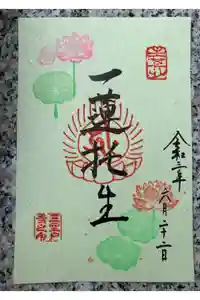 一蓮托生
令和三年
六月二十二日